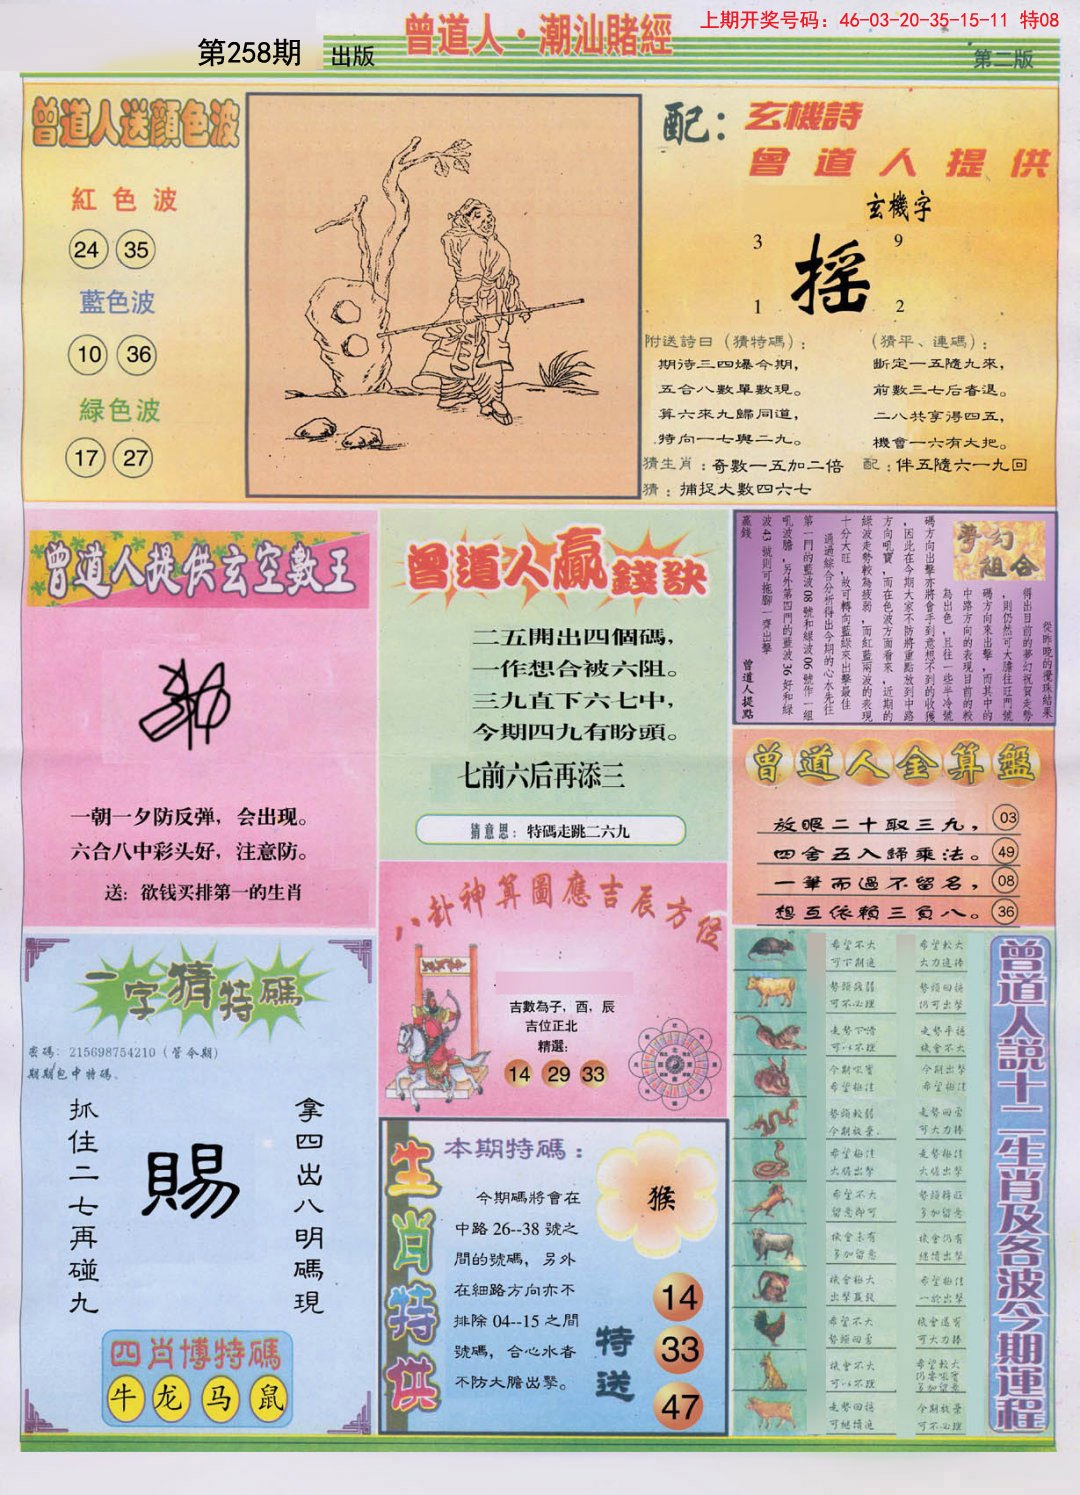 上期开奖号码：46-03-20-35-15-11 特08
曾道人·潮汕賭經
第258期 出版
第二版
曾道人送顏色波
紅色波
24 35
藍色波
10 36
緑色波
17 27
配：玄機詩
曾道人提供
玄機字
3 9
搖
1 2
附送詩曰（猜特碼）：
期待三四爆今期，
五合八數單數現。
算六來九歸同道，
特向一七與二九。
（猜平、連碼）：
斷定一五隨九來，
前數三七后看退。
二八共享得四五，
機會一六有大把。
猜生肖：奇數一五加二倍
配：伴五隨六一九回
猜：捕捉大數四六七
曾道人提供玄空數王
一朝一夕防反弹，会出现。
六合八中彩头好，注意防。
送：欲钱买排第一的生肖
曾道人贏錢訣
二五開出四個碼，
一作想合被六阻。
三九直下六七中，
今期四九有盼頭。
七前六后再添三
猜意思：特碼走跳二六九
夢幻組合
從昨晚的攪珠結果
得出目前的夢幻祝賀走勢
，則仍然可大膽往旺門號
碼方向來出擊，而其中的
中路方向的表現目前的較
為出色，且往一些半冷號
碼方向出擊亦將會手到意想不到的收獲
，因此在今期大家不防將重點放到中路
方向吼寶，而在色波方面看來，近期的
綠波走勢較為疲弱，而紅藍兩波的表現
十分大旺，故可轉向藍綠來出擊最佳
通過綜合分析得出今期的心水先往
第一門的藍波08號和綠波06號作一組
吼波膽，另外第四門的藍波36好和綠
波43號則可拖腳一齊出擊
贏錢
曾道人提點
曾道人金算盤
放眼二十取三九， 03
四舍五入歸乘法。 49
一筆而過不留名， 08
想互依賴三負八。 36
八卦神算圖應吉辰方位
吉數為子，酉，辰
吉位正北
精選：
14 29 33
一字猜特碼
密碼：215698754210（管今期）
期期包中特碼、
抓住二七再碰九
賜
拿四出八明碼現
四肖博特碼
牛 龙 马 鼠
生肖特供
本期特碼：
今期碼將會在
中路26--38號之
間的號碼，另外
在細路方向亦不
排除04--15之間
號碼，合心水者
不防大膽出擊。
猴
特送
14
33
47
曾道人說十二生肖及各波今期運程
希望不大
可下期進
希望較大
大力追捧
可不必理
仍可出擊
可以不理
機會不大
希望極佳
今期出擊
希望極佳
勢頭較弱
今期放棄.
可大力捧
希望不大
留意即可
多加留意
機會未有
多加留意
機會仍有
繼續出擊
機會極大
希望極佳
一於出擊
希望不大
機會還有
可大力捧
機會不大
可以不理
希望較大
多加留意
走勢回穩
可繼續進
今期放棄
可不必理